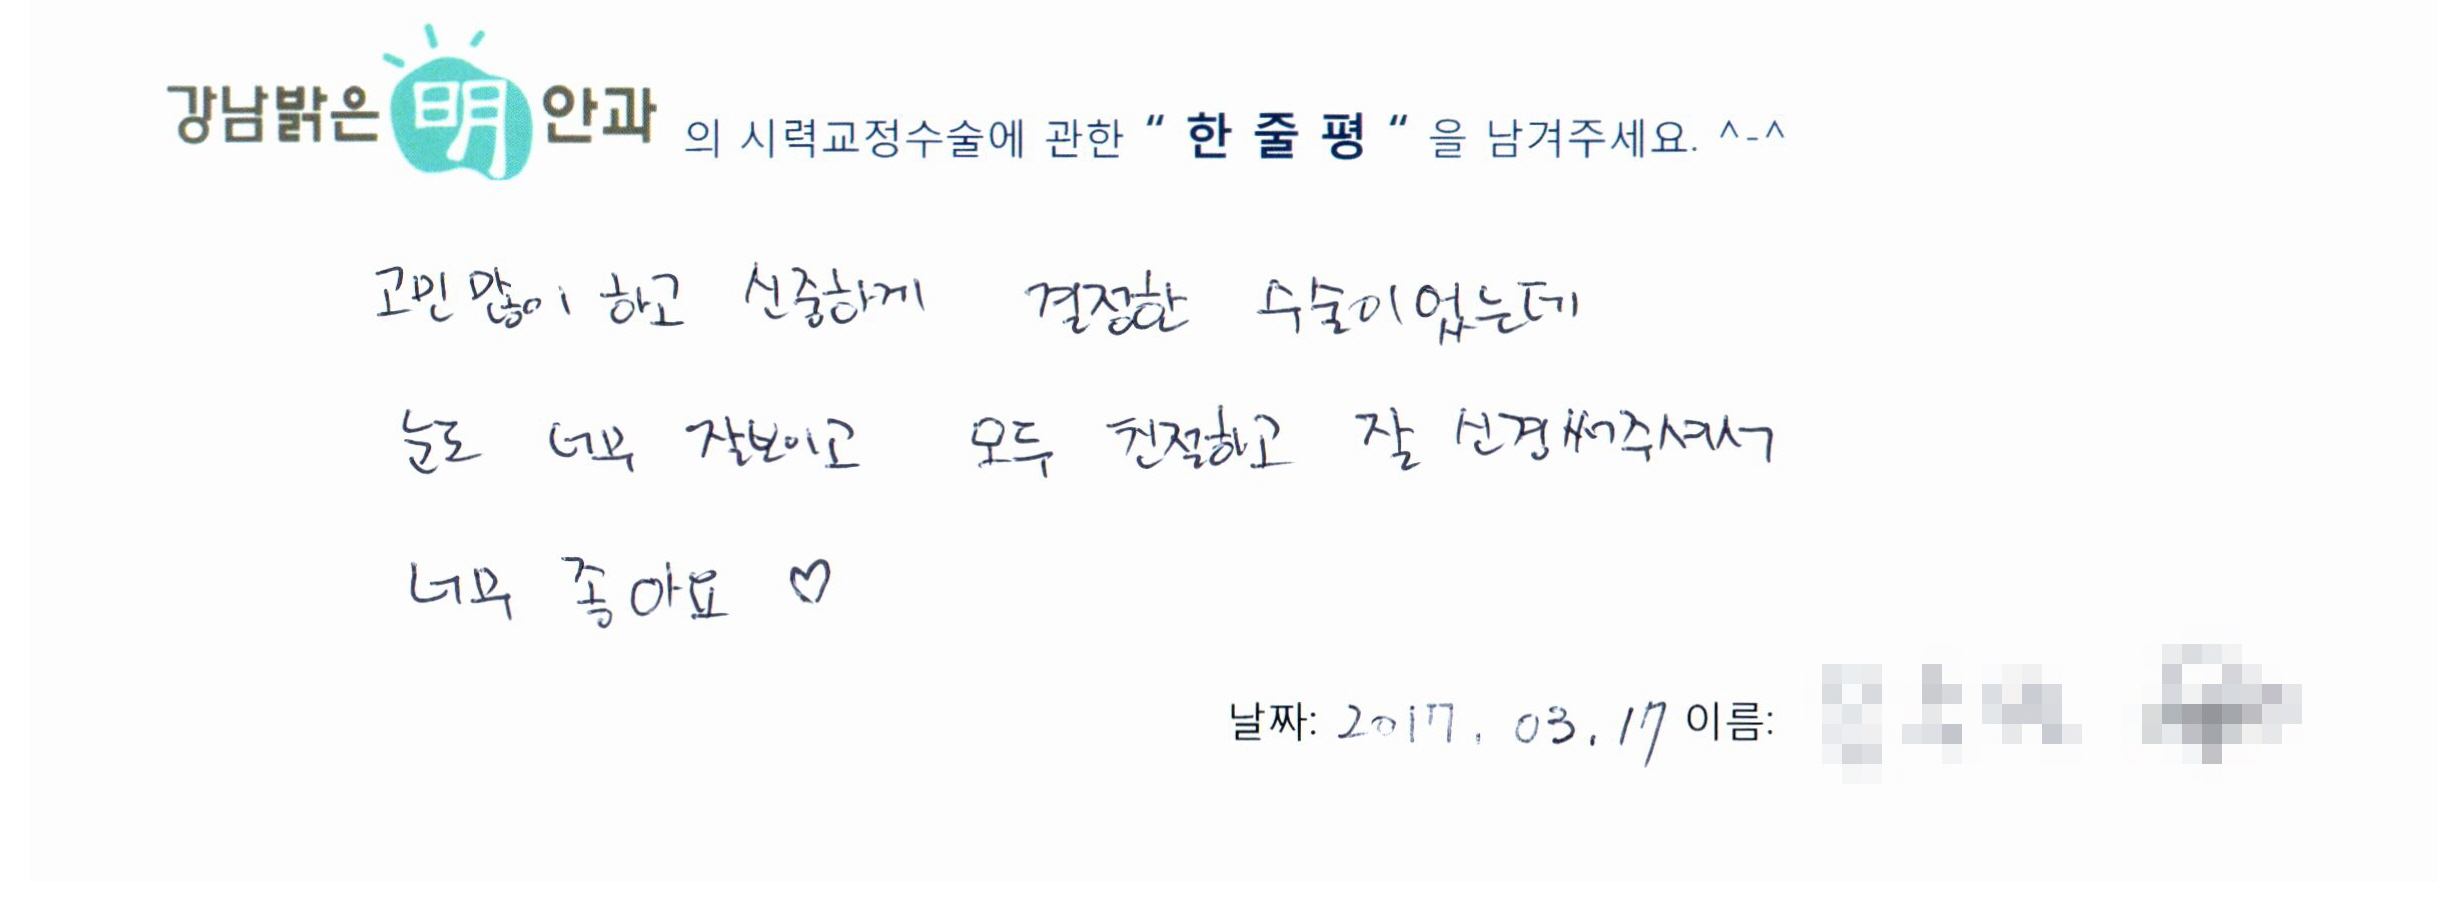 강남밝은 明 안과 의 시력교정수술에 관한 “ 한 줄 평 “ 을 남겨주세요. ^-^
고민 많이 하고 신중하게 결정한 수술이었는데
눈도 너무 잘보이고 모두 친절하고 잘 신경써주셔서
너무 좋아요 ♡
날짜: 2017. 03. 17 이름: